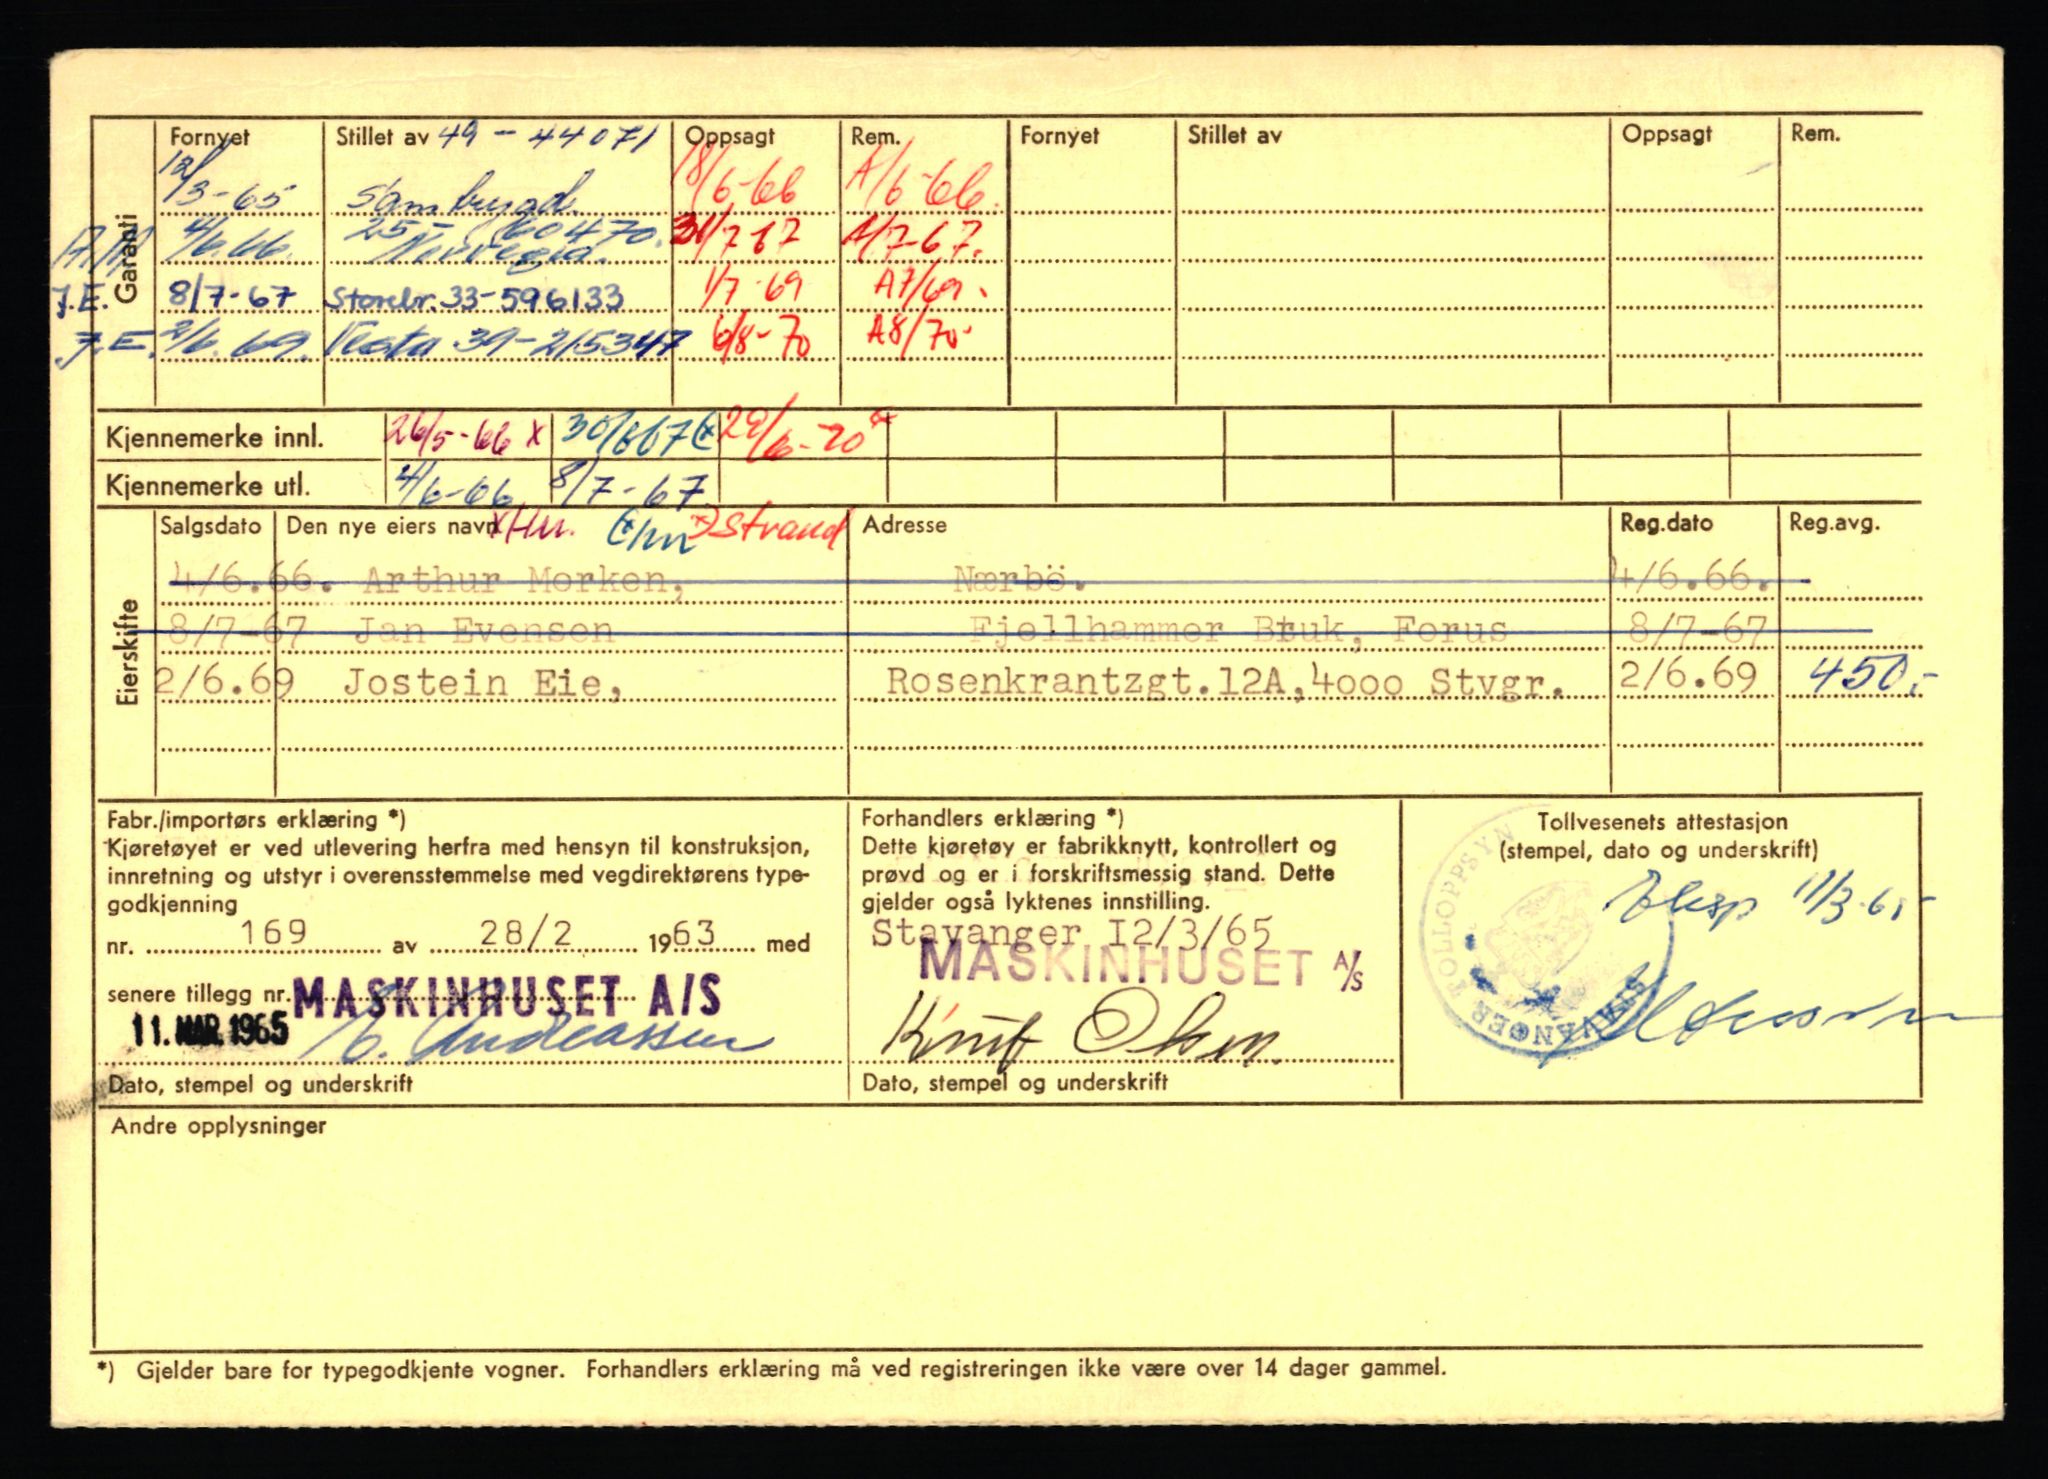 Fornyet Stillet av 49-44071 Oppsagt Rem. Fornyet Stillet av Oppsagt Rem.
Garanti
12/3-65 Sambygd. 18/6-66 A/6-66.
4/6.66. 25-60470. Norvegia. 31/7 67 A/7-67.
J.E. 8/7-67 Storebr. 33-596133 1/7-69 A7/69.
J.E. 2/6.69. Vesta 39-215347 6/8-70 A8/70-
Kjennemerke innl. 26/5-66 x 30/667 (x 29/6-70 x
Kjennemerke utl. 4/6-66 8/7-67
Eierskifte
Salgsdato Den nye eiers navn x) Hn. (x Hn x) Strand Adresse Reg.dato Reg.avg.
4/6.66. Arthur Morken, Nærbö. 4/6.66.
8/7-67 Jan Evensen Fjellhammer Bruk, Forus 8/7-67
2/6.69 Jostein Eie, Rosenkrantzgt.12A,4000 Stvgr. 2/6.69 450.-
Fabr./importørs erklæring *)
Kjøretøyet er ved utlevering herfra med hensyn til konstruksjon,
innretning og utstyr i overensstemmelse med vegdirektørens type-
godkjenning
nr. 169 av 28/2 1963 med
senere tillegg nr. MASKINHUSET A/S
11. MAR. 1965 E. Andreassen
Dato, stempel og underskrift
Forhandlers erklæring *)
Dette kjøretøy er fabrikknytt, kontrollert og
prøvd og er i forskriftsmessig stand. Dette
gjelder også lyktenes innstilling.
Stavanger I2/3/65
MASKINHUSET A/S
Knut Olsen.
Dato, stempel og underskrift
Tollvesenets attestasjon
(stempel, dato og underskrift)
Eksp 11/3-65
STAVANGER TOLLOPPSYN
Andre opplysninger
*) Gjelder bare for typegodkjente vogner. Forhandlers erklæring må ved registreringen ikke være over 14 dager gammel.